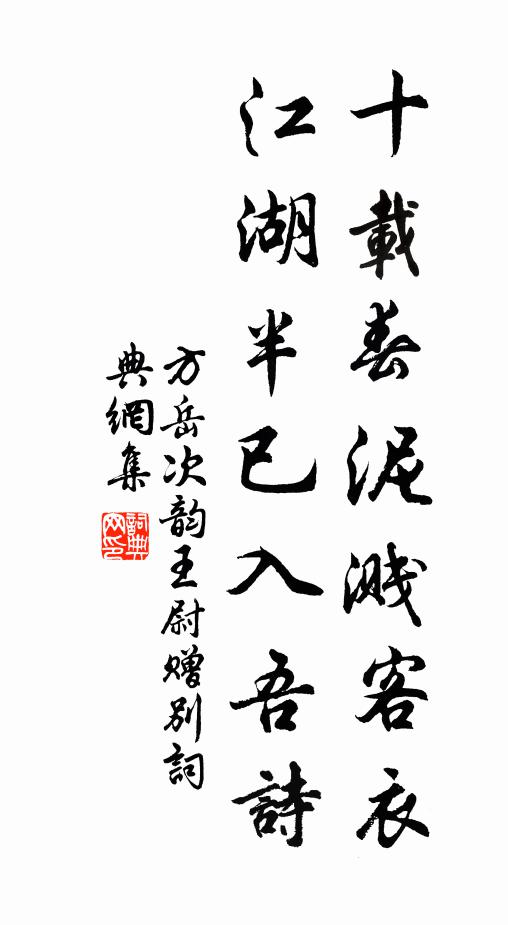 十載春泥濺客衣
江湖半已入吾詩
方岳次韵王尉贈別詞
典網集
詞典
网印